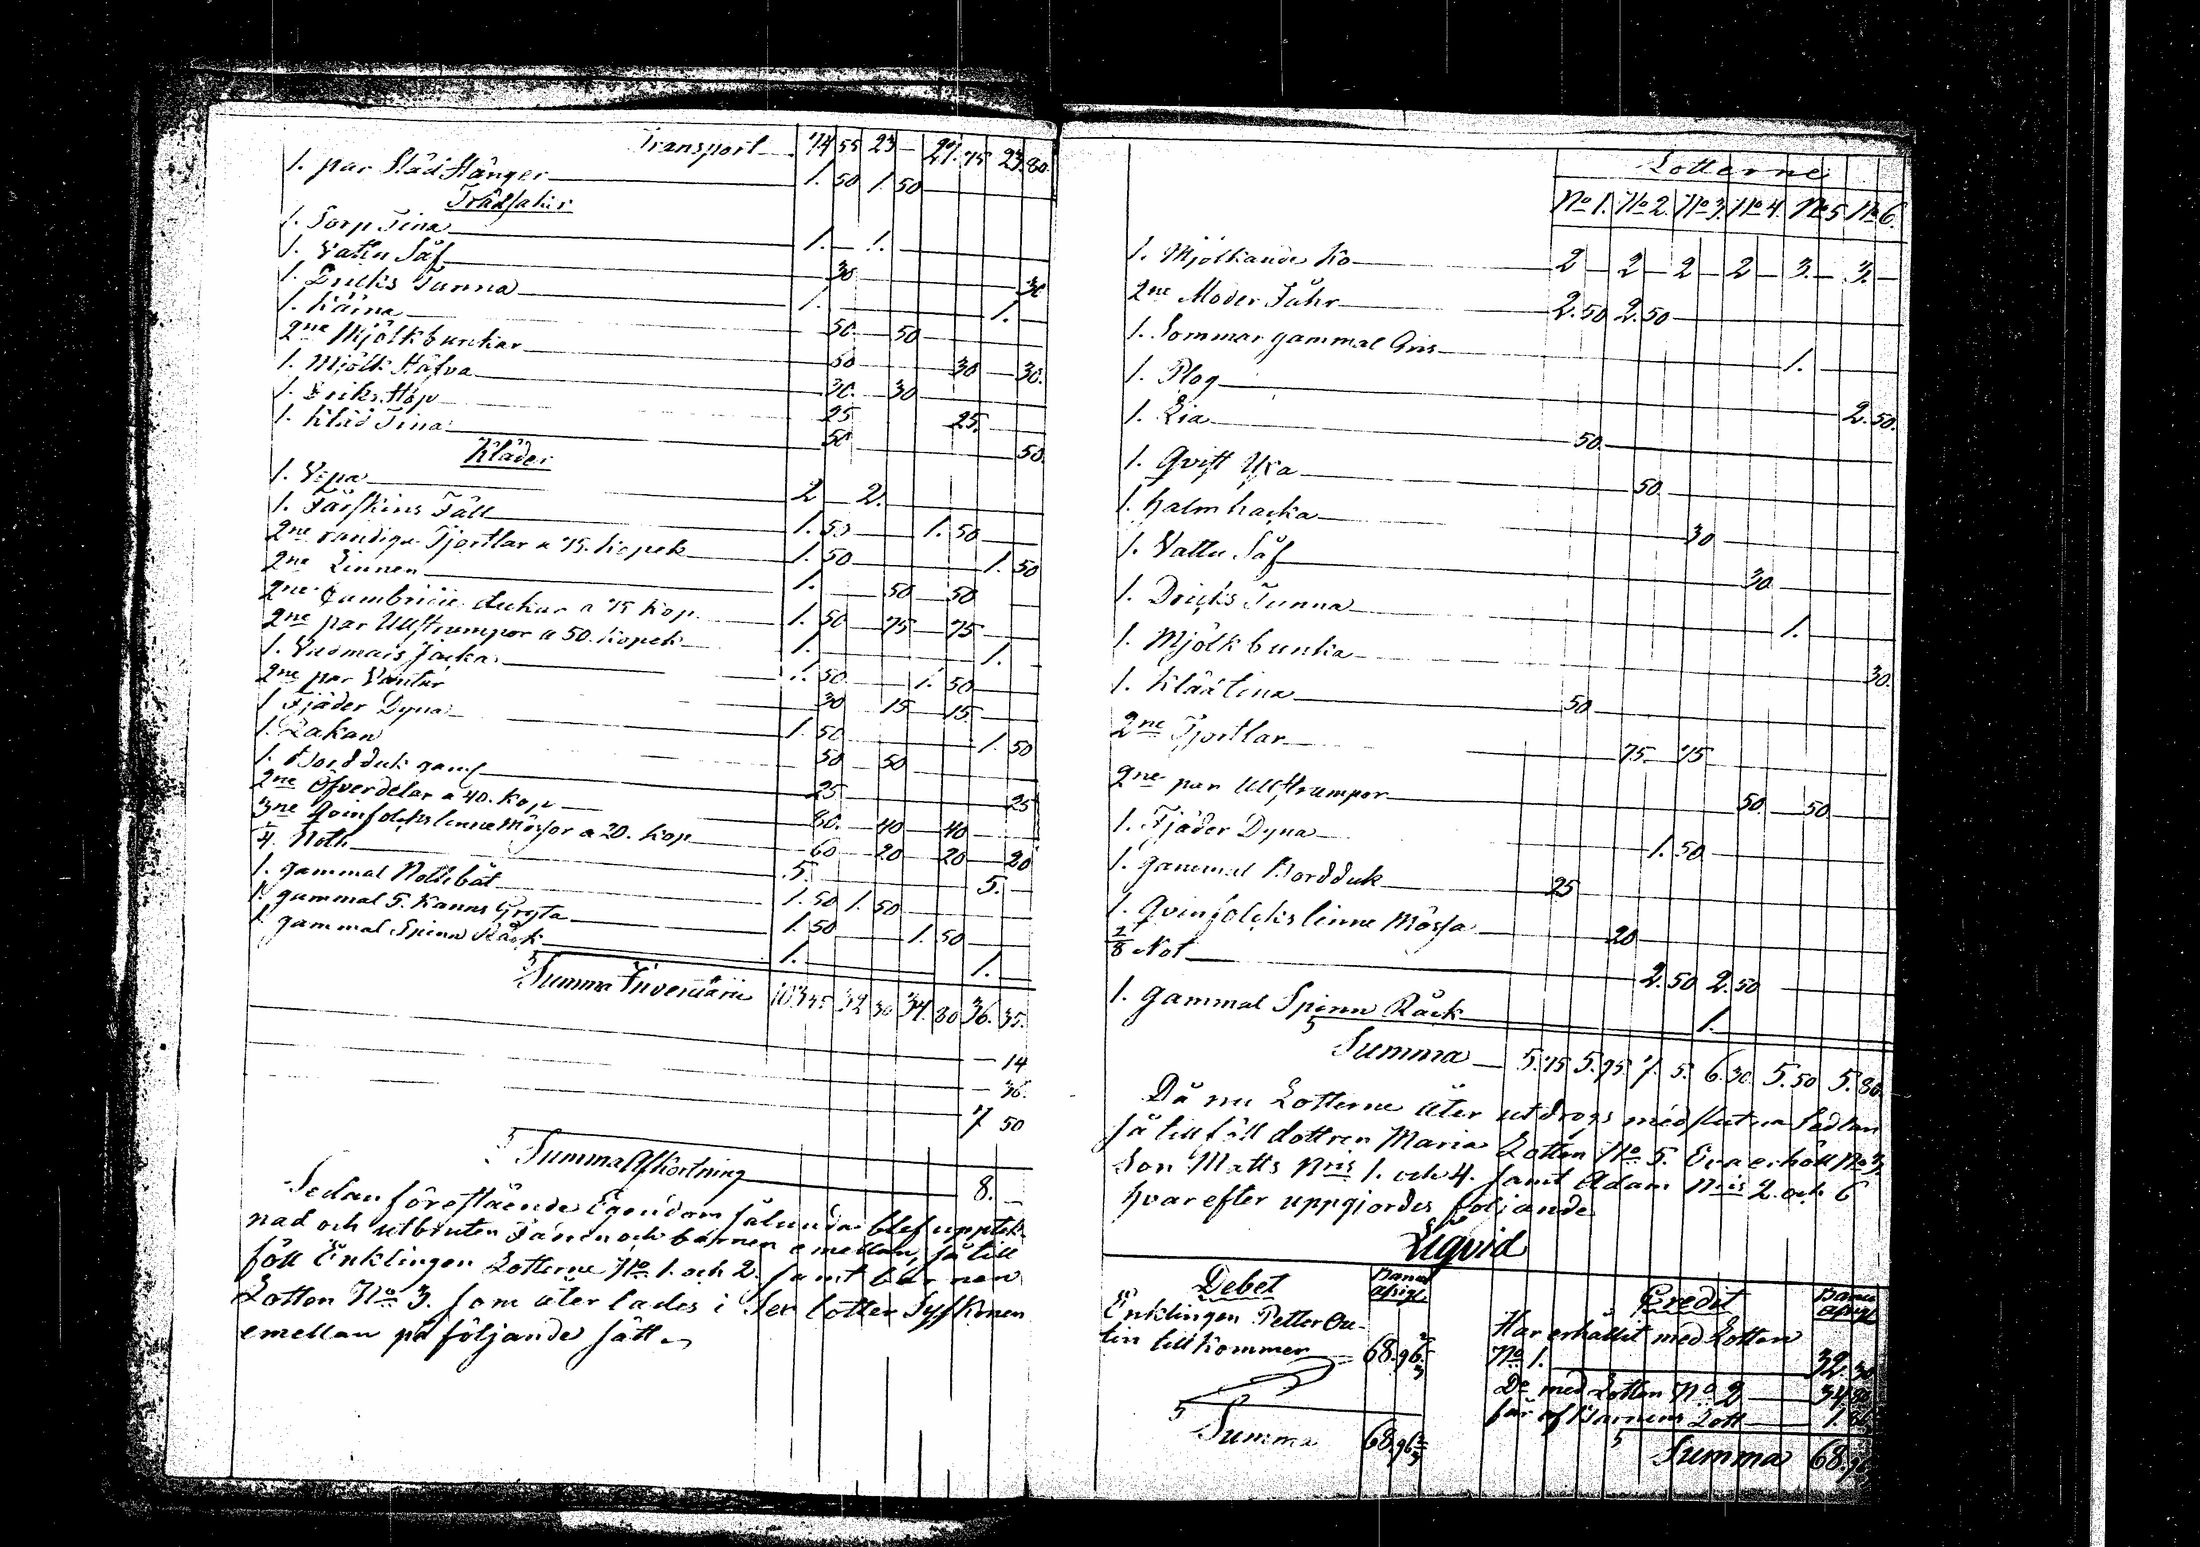 Transport 74 55 23 — 21. 75 23. 80.
1. par Släd Hänger 1. 50 1. 50
Trädsaker
1. Sorp Tina 1. — 1. —
1. Vattu Såf 30 30
1. Dricks Tunna 1. 1.
1. Kärna 50. 50
2ne Mjölkbunkar 60 30 30.
1. Mjölk Häfva 30. 30
1. Dricks Håp 25 25.
1. Kläd Tina 50 50.
Kläder
1. Vepa 2 2.
1. Fårskins Fäll 1. 50 1. 50
2ne randiga Tjortlar a 75. Kopek 1. 50 1. 50
2ne Linnen 1. 50 50
2ne Cambricie dukar a 75 Kop. 1. 50 75 75
2ne par Ullstrumpor a 50. Kopek 1. 1.
1. Vadmals Jacka 1. 50 1. 50
2ne par Vantar 30 15 15
1 Fjäder Dyna 1. 50 1. 50
1. Lakan 50 50
1. Bordduk gaml 25 25
2ne Öfverdelar a 40. Kop 80. 40 40
3ne Qvinfolcks linne Mössor a 20. Kop 60 20 20 20
1/4. Noth 5. 5.
1. gammal Nothbåt 1. 50 1. 50
1. gammal 5. Kanns Gryta 1. 50 1. 50
1. gammal Spinn Råck 1. 1.
Summa Inventarii 103 45 32 30 34. 80 36. 35.
— 14
— 36.
7 50
Summa Afkortning 8. —
Sedan föreslående Egendom sålunda blef upptek-
nad och utbruten Fadren och barnen emellan, så till
föll Enklingen Lotterne No 1. och 2. samt barnen
Lotten No 3. som åter lades i Sex lotter Syskonen
emellan på följande sätt.
Lotterne
No 1. No 2. No 3. No 4. No 5. No 6.
1. Mjölkande Ko 2 — 2 — 2 — 2 — 3. — 3. —
2ne Moder Fåhr 2. 50 2. 50
1. Sommar gammal Gris 1.
1. Plog 2. 50.
1. Lia 50.
1. Qvist Yxa 50.
1. halm hacka 30
1. Vattu Såf 30.
1. Dricks Tunna 1.
1. Mjölkbunka 30.
1. Klädtina 50
2ne Tjortlar 75. 75
2ne par Ullstrumpor 50. 50.
1. Fjäder Dyna 1. 50
1. gammal Bordduk 25
1. Qvinfolcks linne Mössa 20
1/8 Not 2. 50 2. 50
1. gammal Spinn Råck 1.
Summa 5. 75 5. 95 7. 5. 6. 30. 5. 50 5. 80.
Då nu Lotterne åter utdrogs medslutna Sedlar
så tillföll dottren Maria Lotten No 5. Eva erhöll No 3.
Son Matts Nris 1. och 4. samt Adam Nris 2. och 6
hvarefter uppgjordes följande
Liqvid
Debet Banco Assign. Credit Banco Assign.
Enklingen Petter
tillkommer 68. 96 2/3
Har erhållit med Lotten
No 1. 32. 30
Do med Lotten No 2 34. 80
får af Barnens Lott 1. 86
Summa 68. 96 2/3
Summa 68. 96